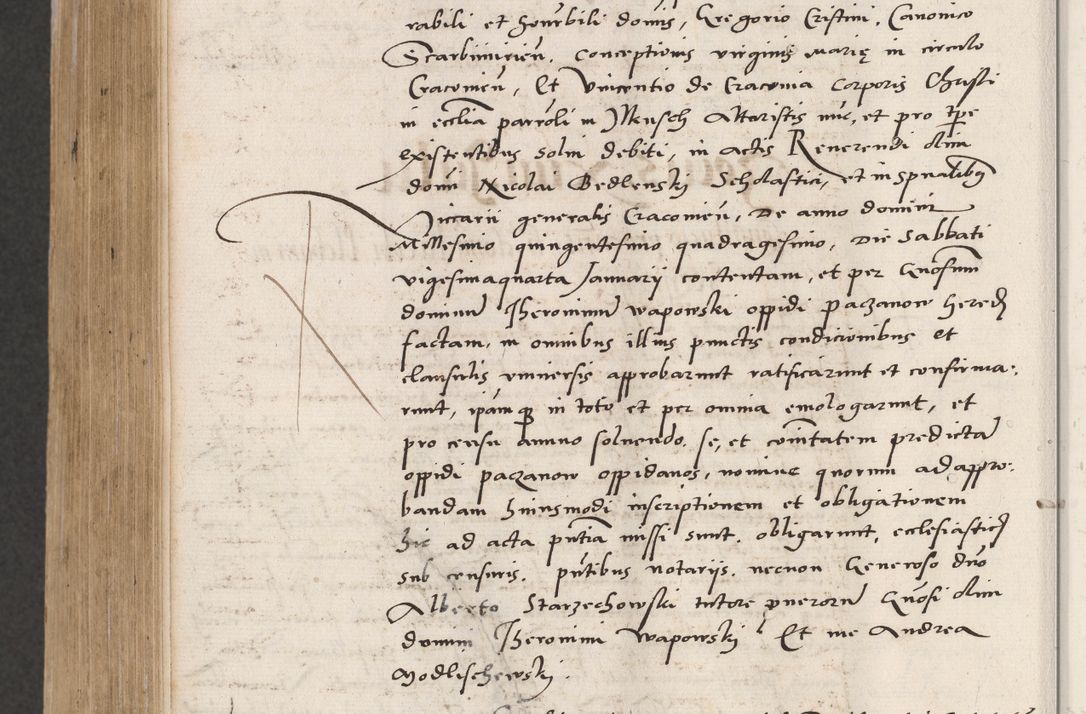 rabili et honrbili domis, Gregorio Cristini, Canonico
Scarbimirien, conceptionis virginis marię in circulo
Cracovien, Et Vincentio de Cracovia corporis Christi
in ecclia parroli in Altaristis nuc, et pro tpe
existentibus solvi debiti, in actis Reverendi olim
domi Nicolai Bedlenski Scholastici, et in spualibq
Viccarii generalis Cracovien, De anno domini
Millesimo quingentesimo quadragesimo, Die Sabbati
vigesimaquarta Januarii contentam, et per Gnosum
dominum Iheronimum wapowski oppidi paczanow hered
factam, in omnibus illius punctis condicionibus et
clausulis universis approbarunt ratificarunt et confirma-
runt, ipamqz in toto et per omnia emologarunt, et
pro censu annuo solvendo, se, et comitatem predicta
oppidi paczanow oppidanos, nomine quorum ad appro-
bandam huiusmodi inscriptionem et obligationem
hic ad acta pntia missi sunt, obligarunt, ecclesiastic
sub censuris, pntibus notariis, necnon Generoso dno
Alberto Starzechowski tutore puerorum Gnosi olim
domini Iheronimi wapowski Et me Andrea
Modlischewski.